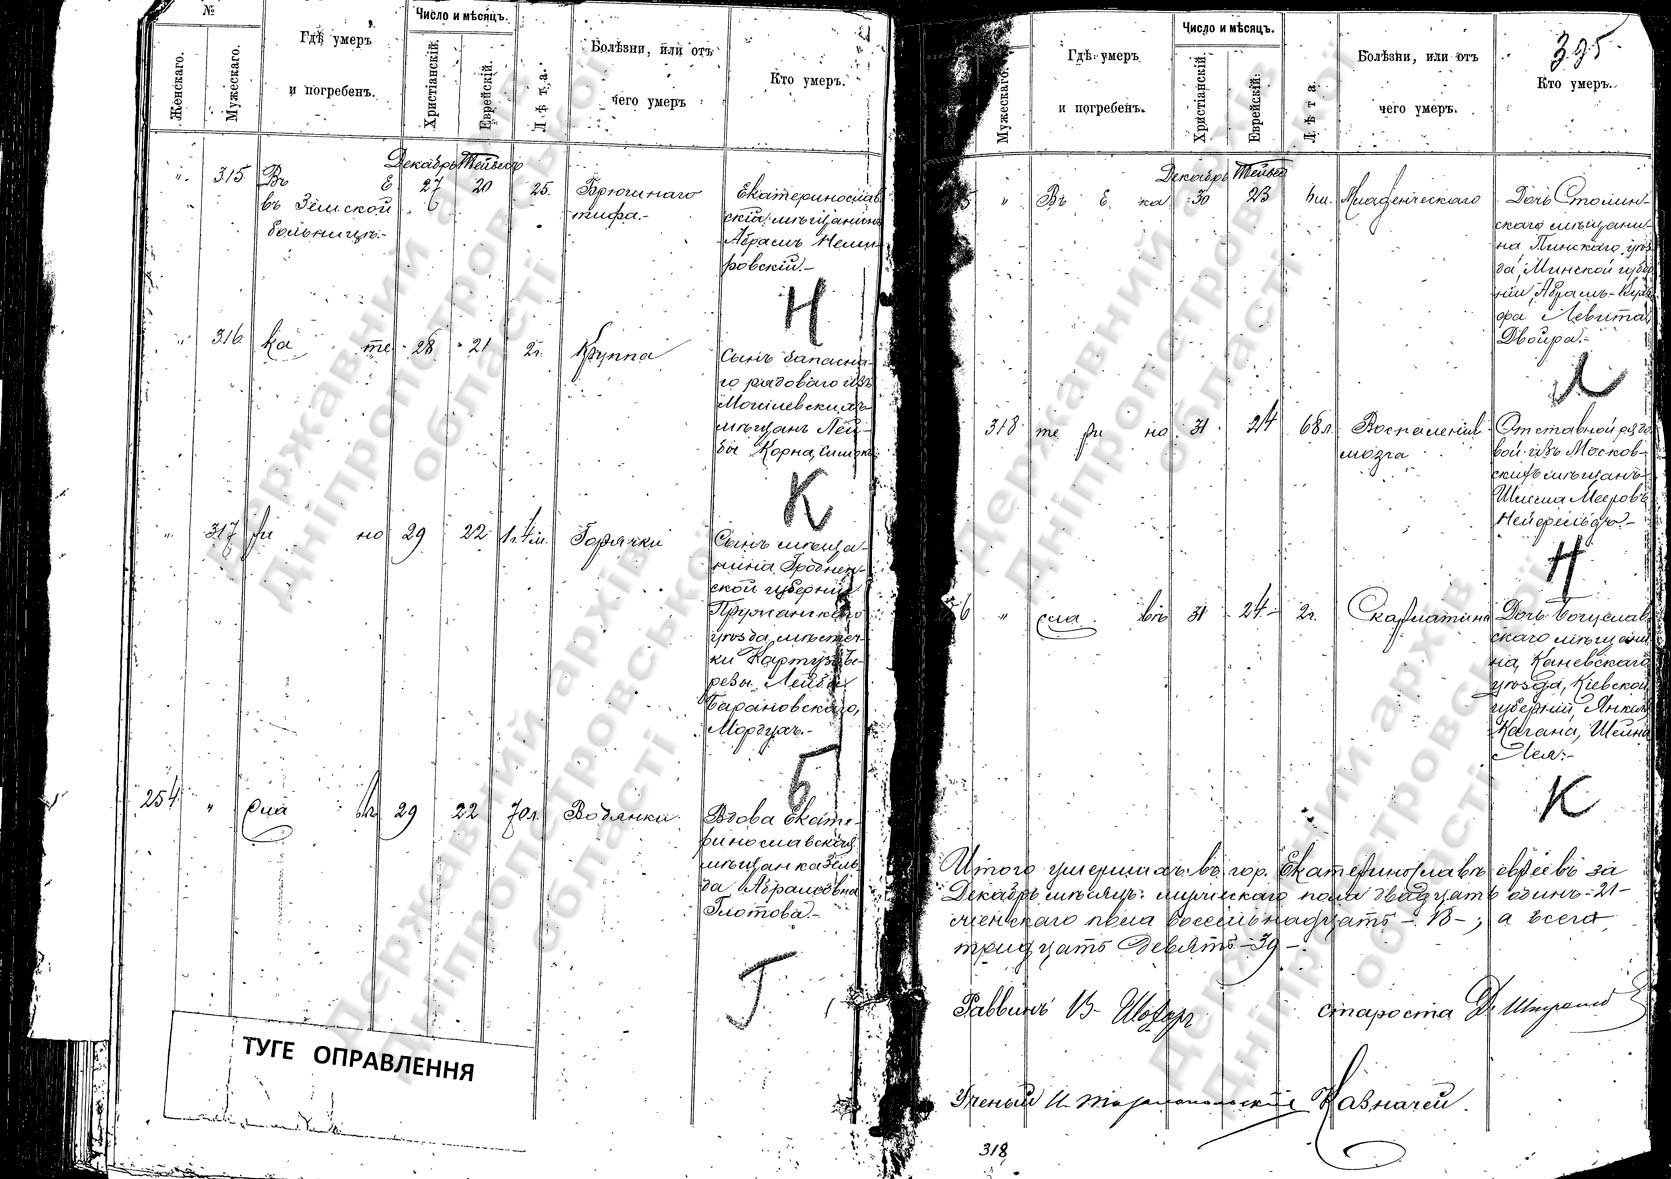 №
Женскаго.
Мужескаго.
Гдѣ умеръ
и погребенъ.
Число и мѣсяцъ.
Христіанскій.
Еврейскій.
Лѣта.
Болѣзни, или отъ
чего умеръ
Кто умеръ.
Декабрь Тейвесъ
" 315 Въ Е 27 20 25. Брюшнаго Екатеринослав
въ Земской тифа.- скій мѣщанинъ
больницѣ.- Абрамъ Неми-
ровскій.-
Н
" 316 ка те 28 21 2г. Круппа Сынъ запасна-
го рядоваго изъ
Могилевскихъ
мѣщанъ Лей-
бы Корна,
К
" 317 ри но 29 22 1г.4м. Горячки Сынъ мѣща-
нина Гроднен-
ской губерніи
Пружанскаго
уѣзда, мѣстеч-
ки Картузъ-Бе-
резы Лейбы
Барановскаго,
Мордухъ.-
Б
254 " сла вѣ 29 22 70л. Водянки Вдова Екате-
ринославская
мѣщанка Зель-
да Абрамовна
Глотова.-
Г
ТУГЕ ОПРАВЛЕННЯ
395.
Мужескаго.
Гдѣ умеръ
и погребенъ.
Число и мѣсяцъ.
Христіанскій
Еврейскій.
Лѣта.
Болѣзни, или отъ
чего умеръ.
Кто умеръ.
Декабрь Тейвес
5 " Въ Е ка 30 23 Младенческаго Дочь Столин-
скаго мѣщани-
на Пинскаго уѣз
да, Минской губер
ніи, Абрамъ-
Левита,
Двойра.-
Л
318 те ри но 31 24 68л. Воспаленія Отставной рядо
мозга вой изъ Москов-
скихъ мѣщанъ
Шлема Мееровъ
Нейфельдъ.-
Н
6 " сла вѣ 31 24 2г. Скарлатина Дочь Богуслав
скаго мѣщани
на, Каневскаго
уѣзда, Кіевской
губерніи, Янкеля
Кагана, Шейна
Лея.-
К
Итого умершихъ въ гор. Екатеринославѣ евреевъ за
Декабрь мѣсяцъ: мужескаго пола двадцать одинъ -21-
женскаго пола восемьнадцать -18-; а всего
тридцать девять -39-
Раввинъ В. староста
Ученый Казначей.
318
Державний архів
Дніпропетровської
області